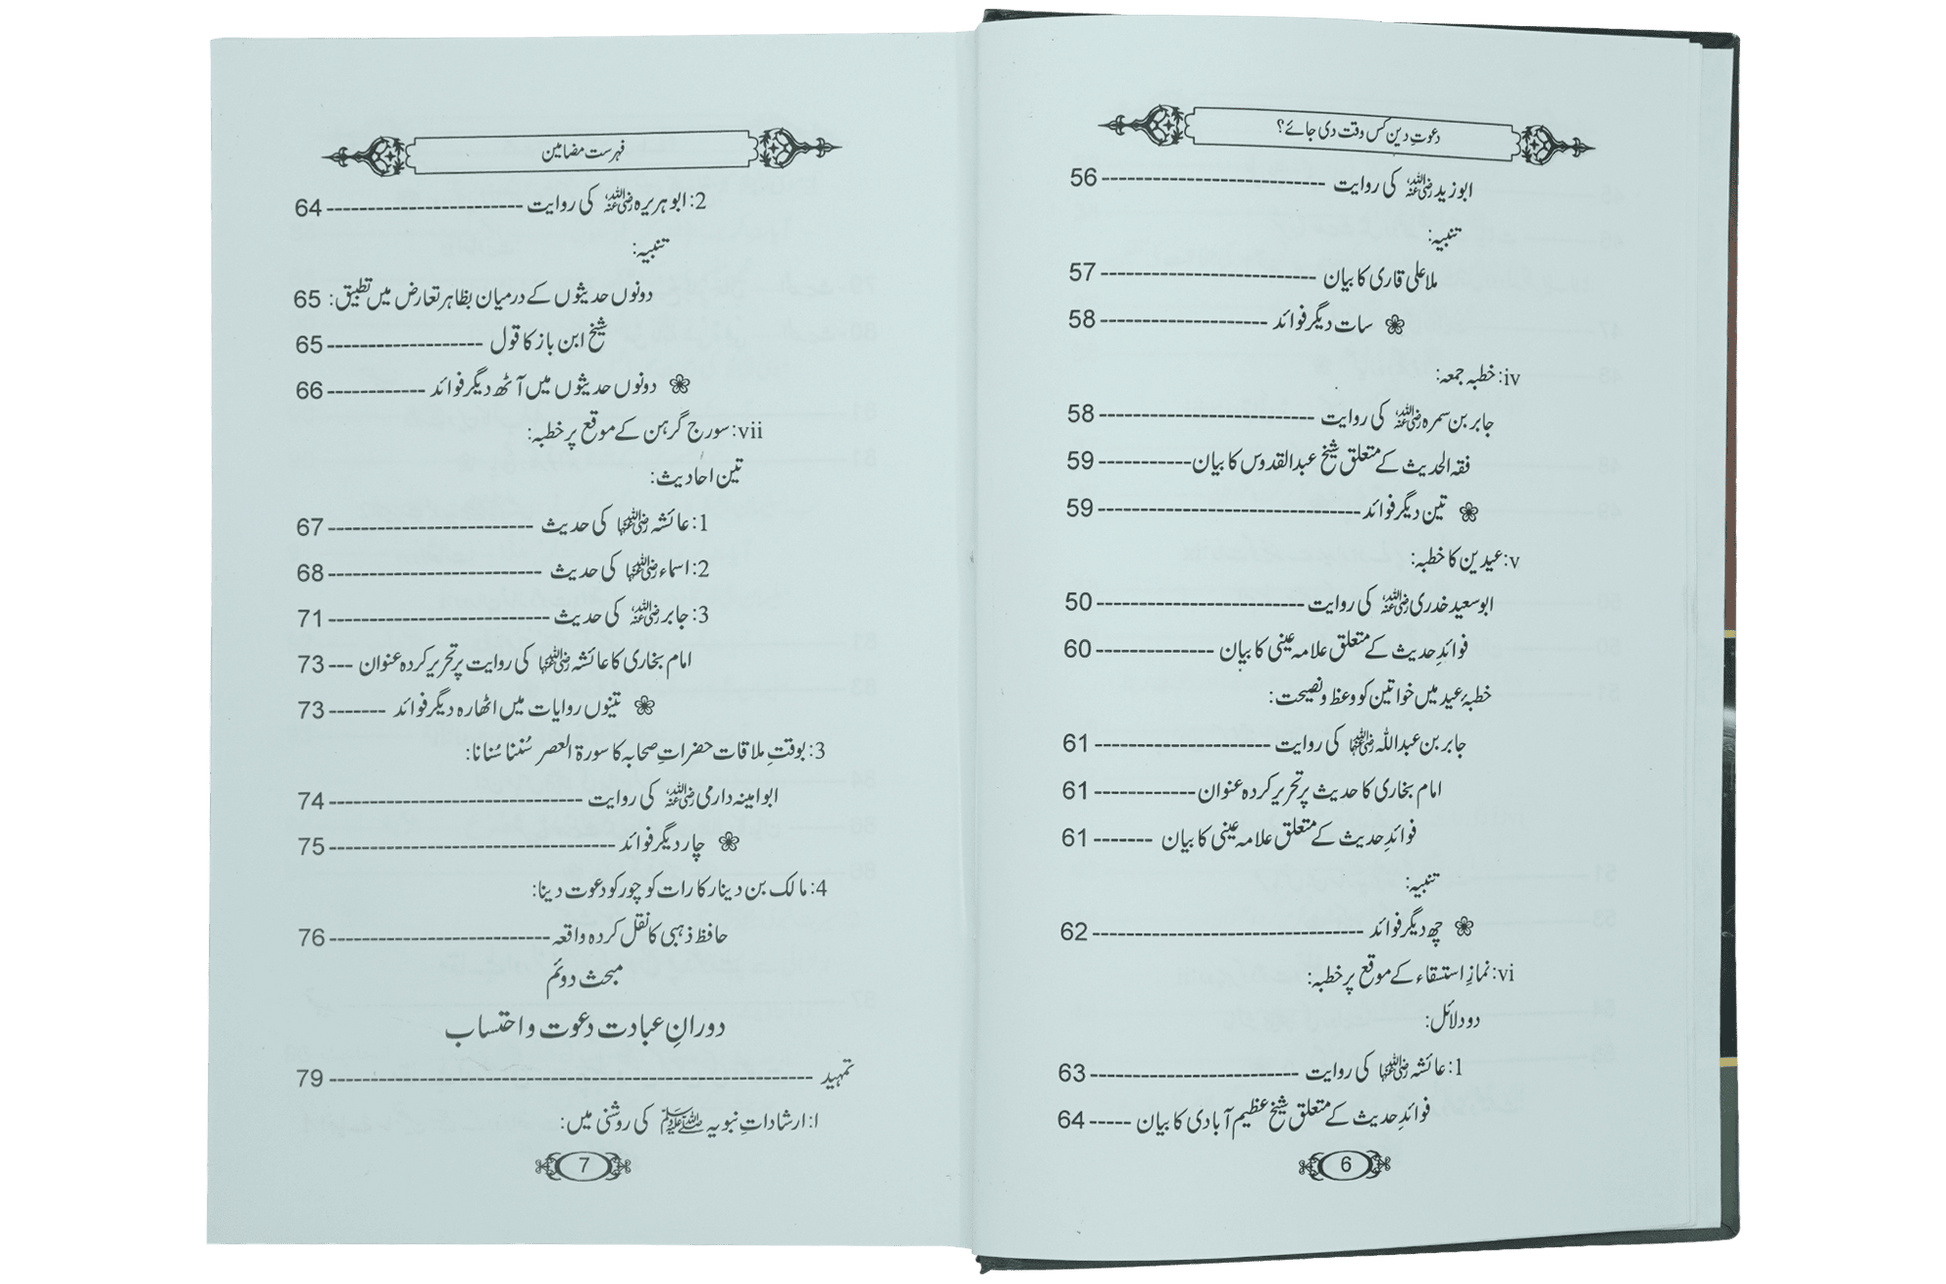 دعوتِ دین کس وقت دی جائے؟
ابوزید رضی اللہ عنہ کی روایت ---------------------------- 56
تنبیہ:
ملا علی قاری کا بیان --------------------------- 57
❀ سات دیگر فوائد --------------------- 58
iv: خطبہ جمعہ:
جابر بن سمرہ رضی اللہ عنہ کی روایت --------------------------- 58
فقہ الحدیث کے متعلق شیخ عبدالقدوس کا بیان ------------ 59
❀ تین دیگر فوائد --------------------------------- 59
v: عیدین کا خطبہ:
ابوسعید خدری رضی اللہ عنہ کی روایت -------------------------- 50
فوائدِ حدیث کے متعلق علامہ عینی کا بیان --------------- 60
خطبۂ عید میں خواتین کو وعظ و نصیحت:
جابر بن عبداللہ رضی اللہ عنہما کی روایت ---------------------- 61
امام بخاری کا حدیث پر تحریر کردہ عنوان ------------- 61
فوائدِ حدیث کے متعلق علامہ عینی کا بیان -------- 61
تنبیہ:
❀ چھ دیگر فوائد ---------------------------------- 62
vi: نمازِ استسقاء کے موقع پر خطبہ:
دو دلائل:
1: عائشہ رضی اللہ عنہا کی روایت -------------------------- 63
فوائدِ حدیث کے متعلق شیخ عظیم آبادی کا بیان ----- 64
6
فہرست مضامین
2: ابوہریرہ رضی اللہ عنہ کی روایت ------------------------- 64
تنبیہ:
دونوں حدیثوں کے درمیان بظاہر تعارض میں تطبیق: 65
شیخ ابن باز کا قول -------------------- 65
❀ دونوں حدیثوں میں آٹھ دیگر فوائد ------------ 66
vii: سورج گرہن کے موقع پر خطبہ:
تین احادیث:
1: عائشہ رضی اللہ عنہا کی حدیث -------------------------- 67
2: اسماء رضی اللہ عنہا کی حدیث --------------------------- 68
3: جابر رضی اللہ عنہ کی حدیث ---------------------------- 71
امام بخاری کا عائشہ رضی اللہ عنہا کی روایت پر تحریر کردہ عنوان --- 73
❀ تینوں روایات میں اٹھارہ دیگر فوائد ------- 73
3: بوقتِ ملاقات حضراتِ صحابہ کا سورۃ العصر سُننا سُنانا:
ابوامینہ دارمی رضی اللہ عنہ کی روایت -------------------------------- 74
❀ چار دیگر فوائد ------------------------------------ 75
4: مالک بن دینار کا رات کو چور کو دعوت دینا:
حافظ ذہبی کا نقل کردہ واقعہ ---------------------------- 76
مبحث دوئم
دورانِ عبادت دعوت و احتساب
تمہید ------------------------------------------------------------- 79
ا: ارشاداتِ نبویہ ﷺ کی روشنی میں:
7